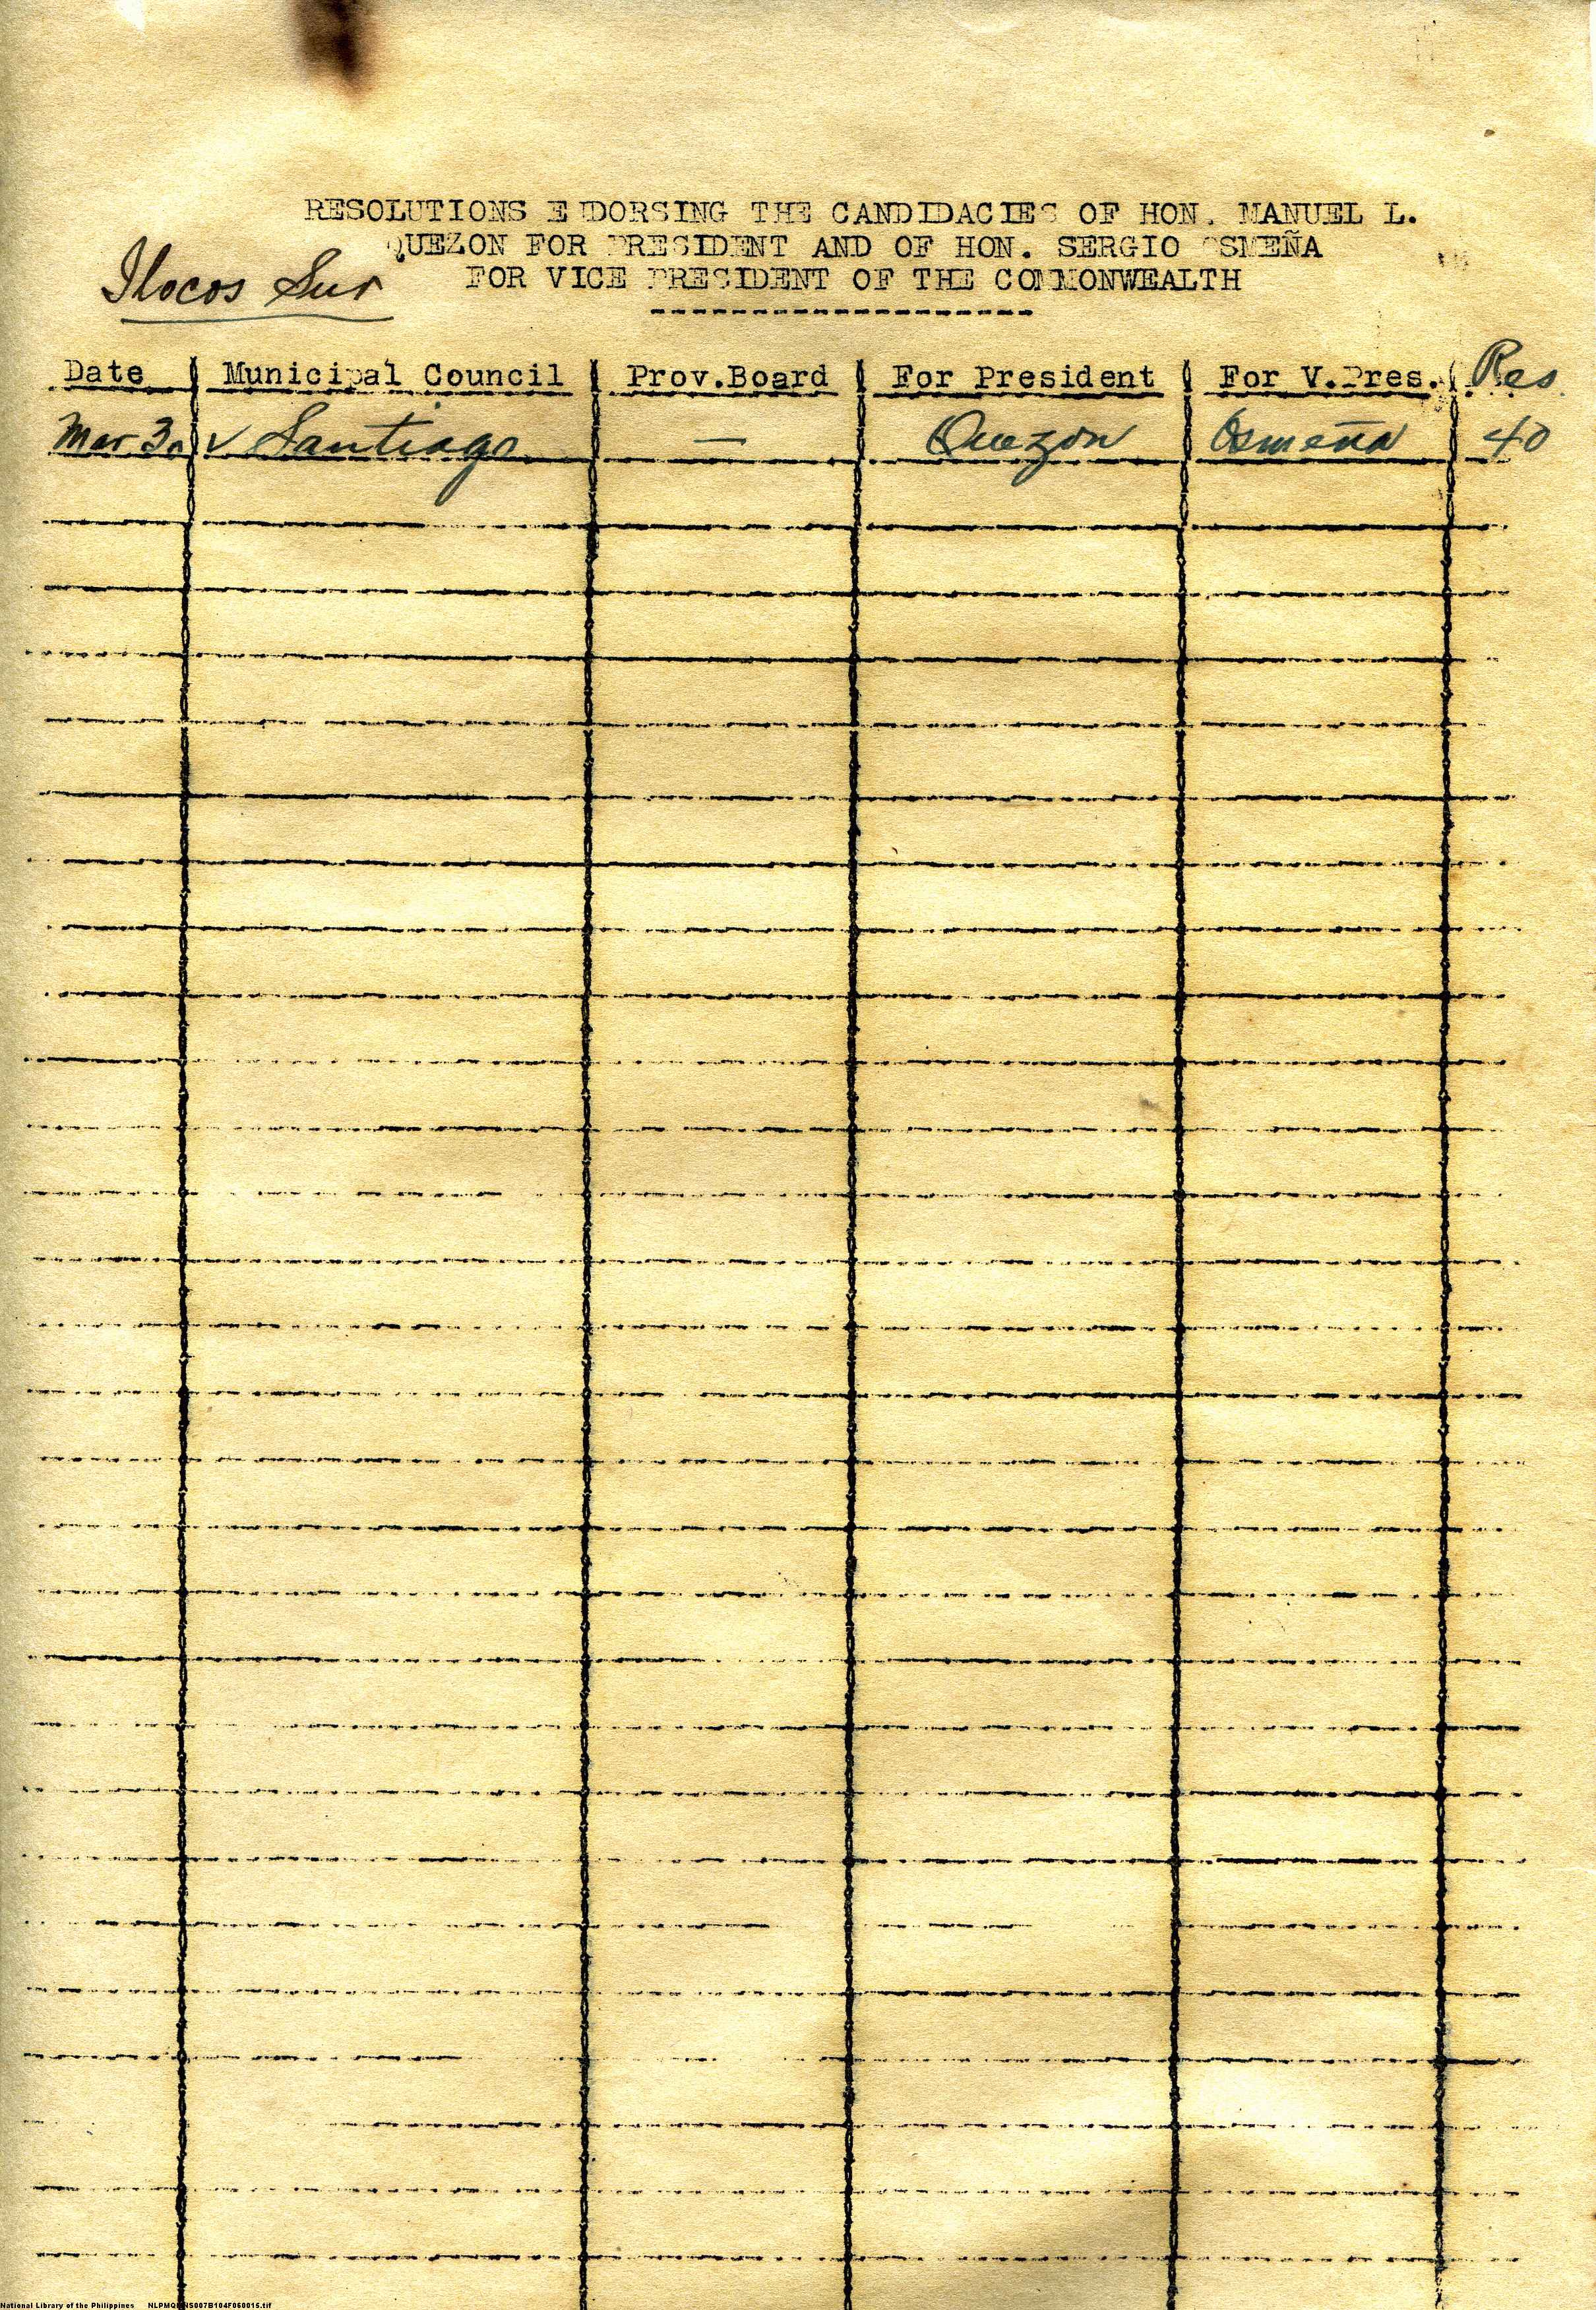 RESOLUTIONS ENDORSING THE CANDIDACIES OF HON. MANUEL L.
QUEZON FOR PRESIDENT AND OF HON. SERGIO OSMEÑA
FOR VICE PRESIDENT OF THE COMMONWEALTH
Ilocos Sur
Date Municipal Council Prov.Board For President For V.Pres. Res
Mar 30 ✓ Santiago — Quezon Osmeña 40
National Library of the Philippines